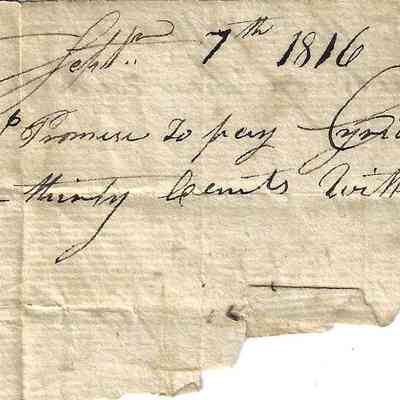 Septr 7th 1816
Promise to pay
thirty Cents With